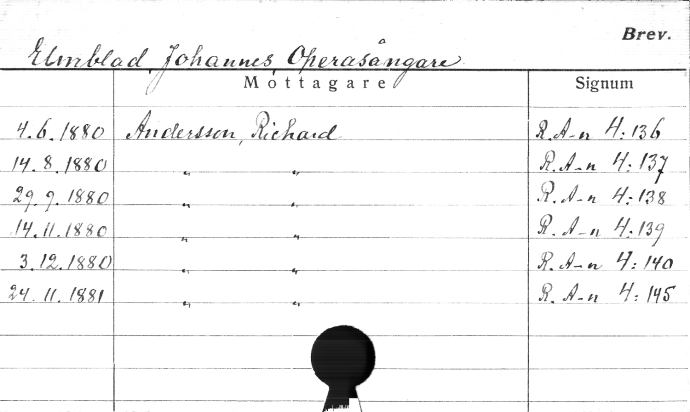 Brev.
Elmblad, Johannes, Operasångare
Mottagare Signum
4.6.1880 Andersson, Richard R. A-n 4:136
14.8.1880 „ „ R. A-n 4:137
29.9.1880 „ „ R. A-n 4:138
14.11.1880 „ „ R. A-n 4:139
3.12.1880 „ „ R. A-n 4:140
24.11.1881 „ „ R. A-n 4:145